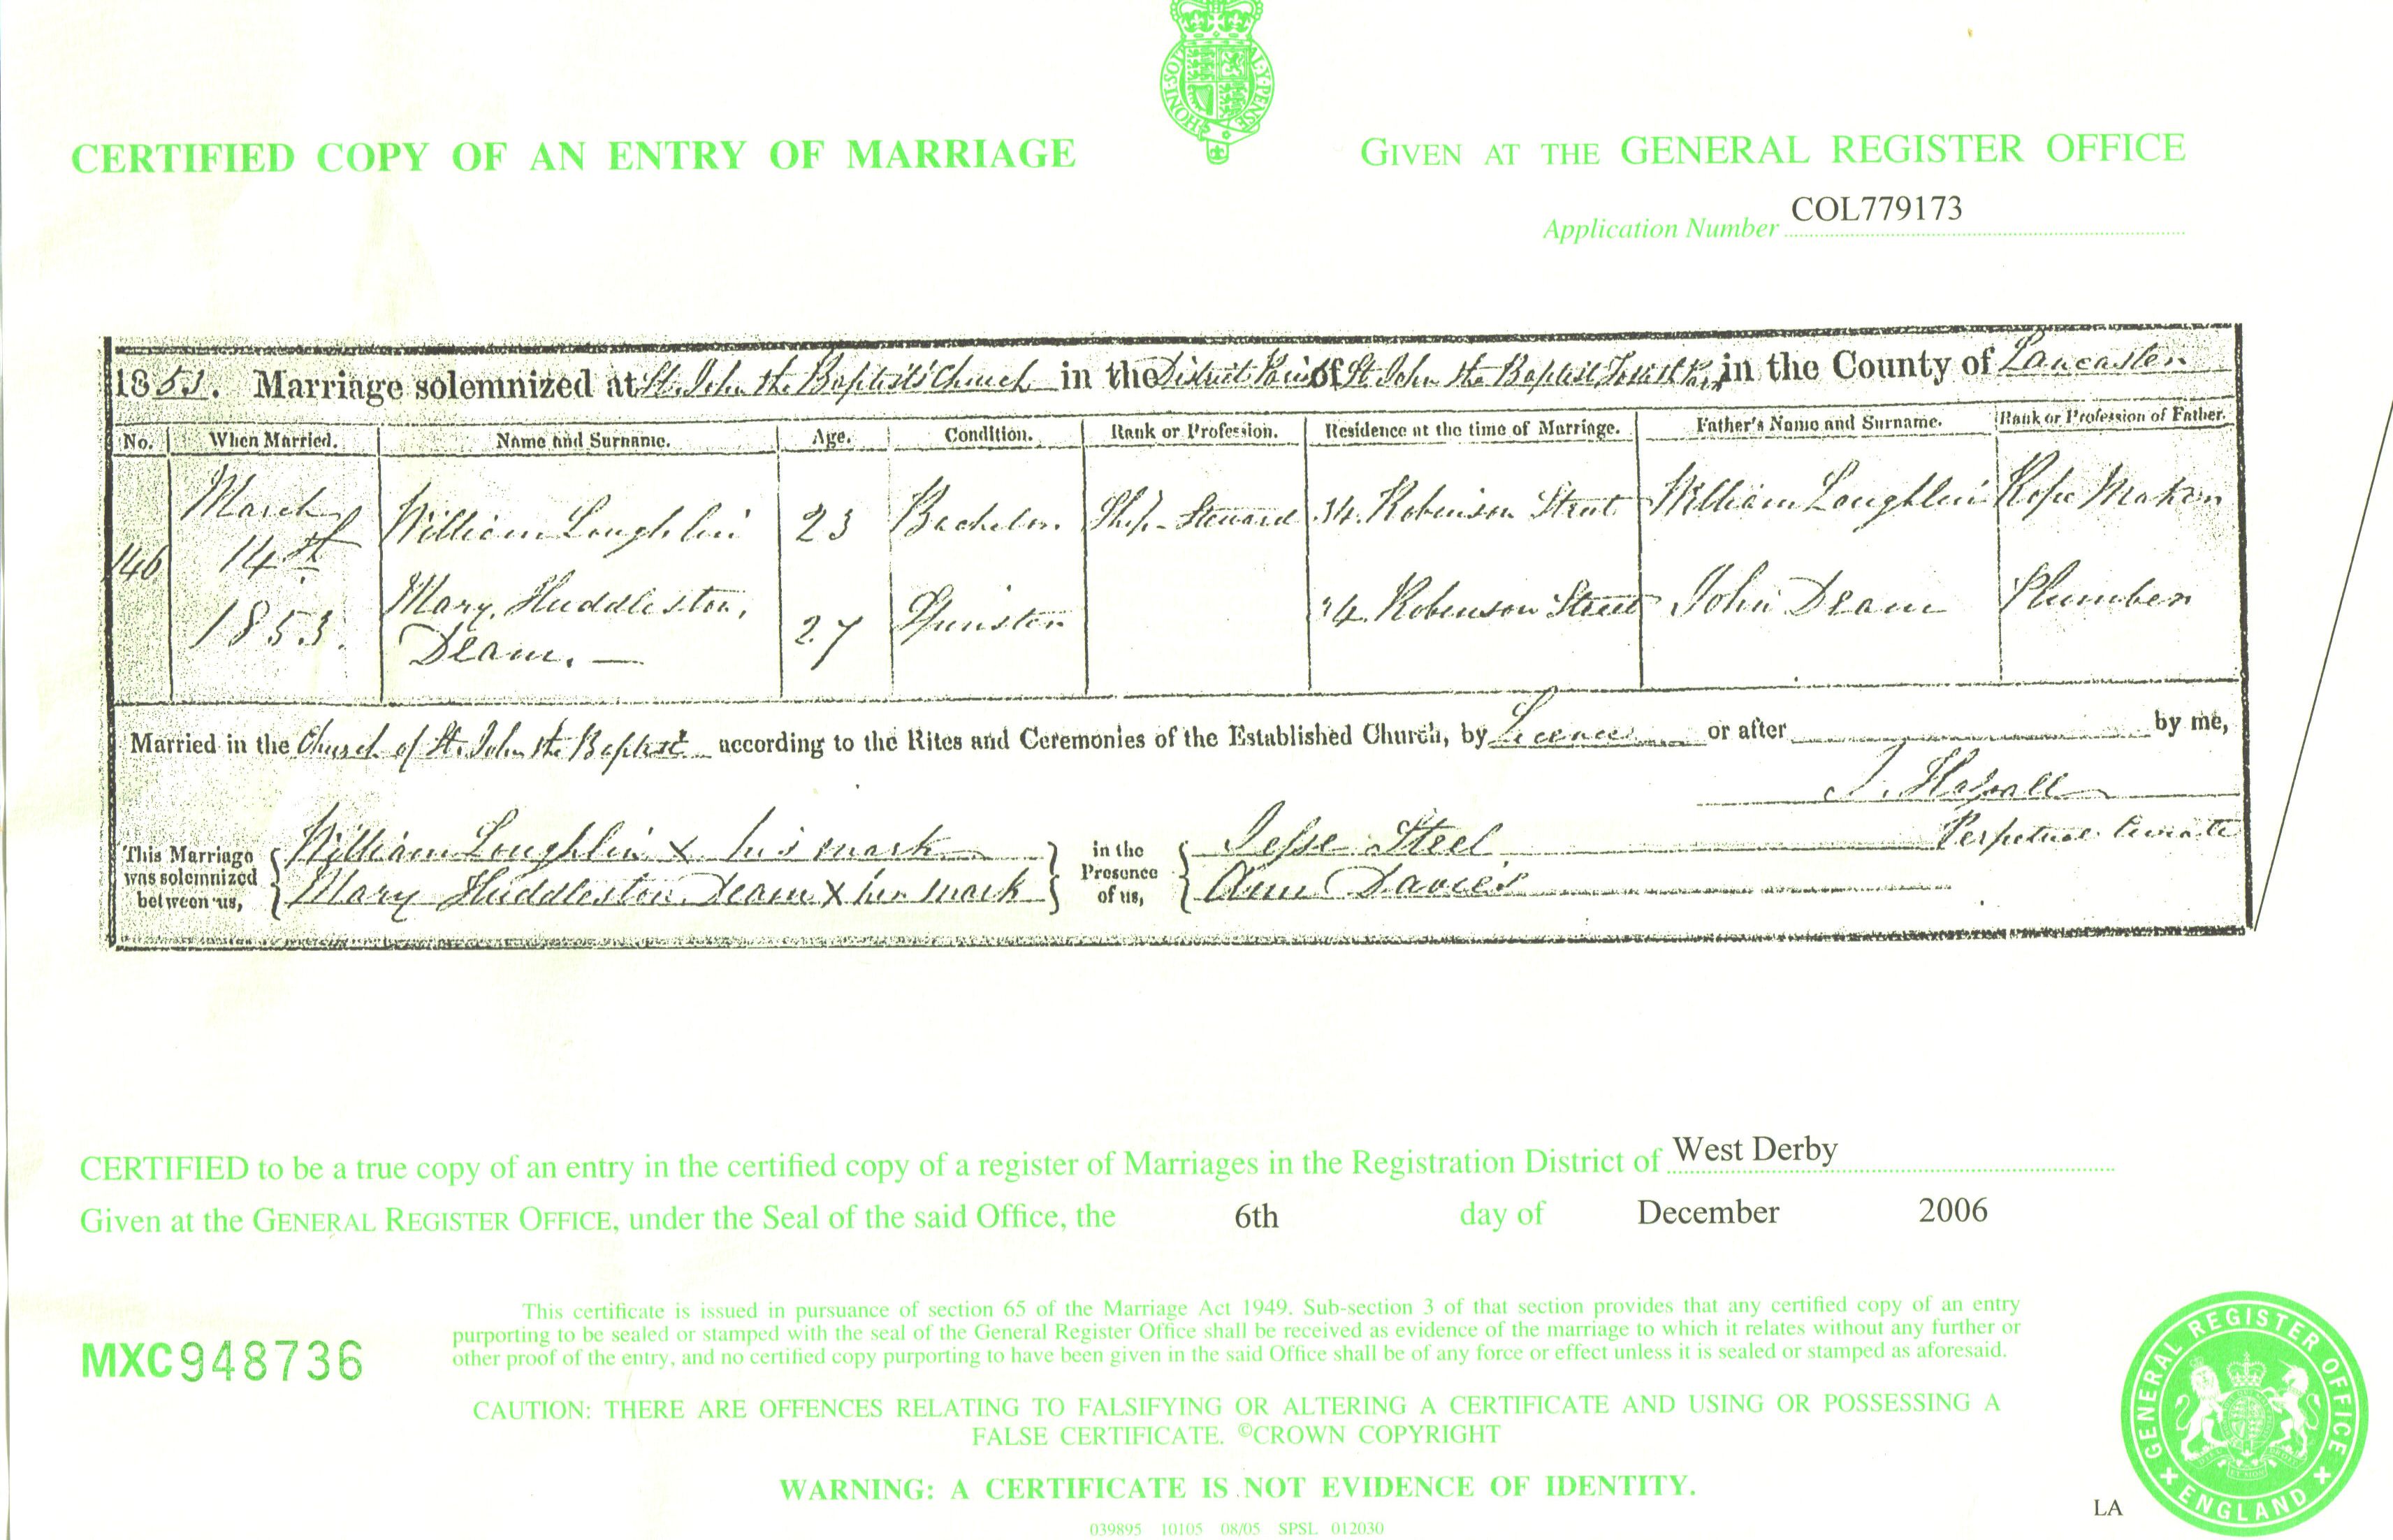 HONI·SOIT AL·Y·PENSE
CERTIFIED COPY OF AN ENTRY OF MARRIAGE
GIVEN AT THE GENERAL REGISTER OFFICE
Application Number COL779173
1853. Marriage solemnized at St. John the Baptist's Church in the District Parish of St John the Baptist Toxteth Park in the County of Lancaster
No. When Married. Name and Surname. Age. Condition. Rank or Profession. Residence at the time of Marriage. Father's Name and Surname. Rank or Profession of Father.
146 March 14th 1853. William Loughlin 23 Bachelor Ship-Steward 34. Robinson Street William Loughlin Rope Maker
Mary Huddleston, Deam. — 27 Spinster 34. Robinson Street John Deam Plumber
Married in the Church of St. John the Baptist according to the Rites and Ceremonies of the Established Church, by Licence or after by me,
This Marriage was solemnized between us, William Loughlin X his mark in the Presence of us, Jesse Steel Perpetual Curate
Mary Huddleston Deam X her mark Ann Davies
CERTIFIED to be a true copy of an entry in the certified copy of a register of Marriages in the Registration District of West Derby
Given at the GENERAL REGISTER OFFICE, under the Seal of the said Office, the 6th day of December 2006
This certificate is issued in pursuance of section 65 of the Marriage Act 1949. Sub-section 3 of that section provides that any certified copy of an entry
purporting to be sealed or stamped with the seal of the General Register Office shall be received as evidence of the marriage to which it relates without any further or
other proof of the entry, and no certified copy purporting to have been given in the said Office shall be of any force or effect unless it is sealed or stamped as aforesaid.
MXC948736
CAUTION: THERE ARE OFFENCES RELATING TO FALSIFYING OR ALTERING A CERTIFICATE AND USING OR POSSESSING A
FALSE CERTIFICATE. ©CROWN COPYRIGHT
WARNING: A CERTIFICATE IS NOT EVIDENCE OF IDENTITY.
039895 10105 08/05 SPSL 012030
LA
GENERAL REGISTER OFFICE
ENGLAND